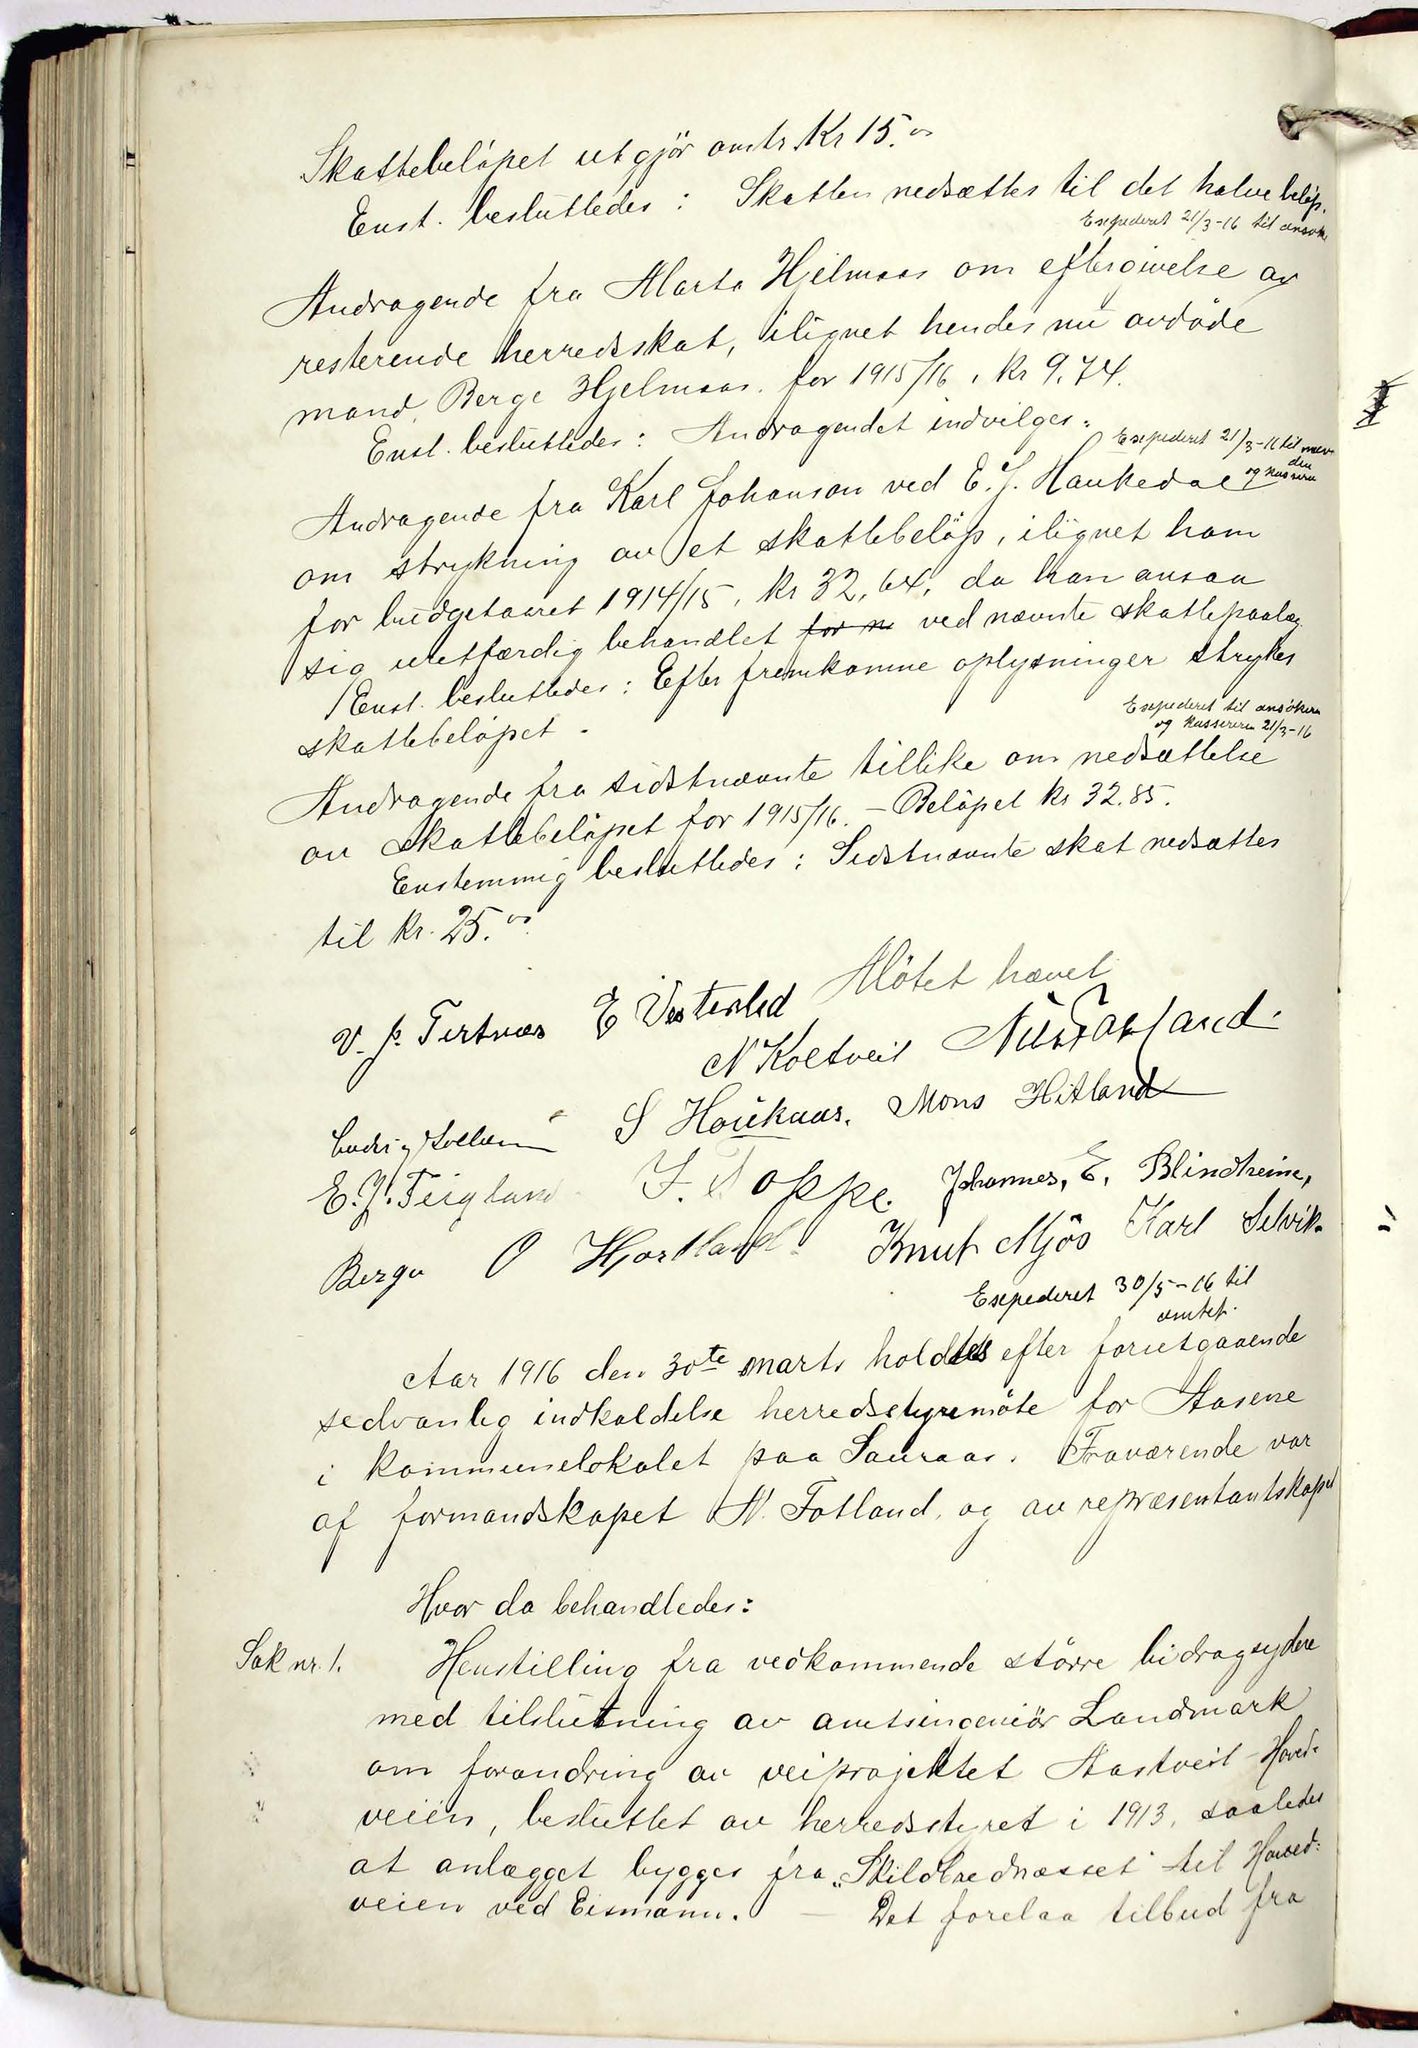 Skattebeløpet utgjör omtr. Kr 15.00
Enst. besluttedes: Skatten nedsættes til det halve beløp.
Expederet 21/3-16 til ansøk.
Andragende fra Marta Hjelmaas om eftergivelse av
resterende herredsskat, ilignet hendes nu avdøde
mand, Berge Hjelmaas. for 1915/16, kr 9,74.
Enst. besluttedes: Andragendet indvilges.
Expederet 21/3-16 til
og kasseren
Andragende fra Karl Johanson ved E. J. Haukedal
om strykning av et skattebeløp, ilignet ham
for budgetaaret 1914/15, kr 32,64, da han ansaa
sig uretfærdig behandlet for n ved nævnte skattepaalæg.
Enst. besluttedes: Efter fremkomne oplysninger strykes
skattebeløpet.
Expederet til ansökeren
og kassereren 21/3-16
Andragende fra sidstnævnte tillike om nedsættelse
av skattebeløpet for 1915/16. – Beløpet kr 32.85.
Enstemmig besluttedes: Sidstnævnte skat nedsættes
til kr. 25.00
Mötet hævet
V. P. Tertnæs E Vesterlid
N Koltveit Nils Fotland
S Haukaas. Mons Hitland
E. J. Teigland J. Toppe. Johannes, E, Blindheim,
Berge O Hjortland. Knut Mjös Karl Selvik.
Expederet 30/5-16 til
amtet.
Aar 1916 den 30te marts holdtes efter forutgaaende
sedvanlig indkaldelse herredsstyremöte for Aasene
i kommunelokalet paa Sauraas. Fraværende var
af formandskapet N. Fotland, og av repræsentantskapet
Hvor da behandledes:
Sak nr. 1. Henstilling fra vedkommende större bidragsydere
med tilslutning av amtsingeniör Landmark
om forandring av veiprojektet Aastveit – Hoved-
veien, besluttet av herredsstyret i 1913, saaledes
at anlægget bygges fra „Skildbrednæsset" til Hoved-
veien ved Eismann. – Det forelaa tilbud fra